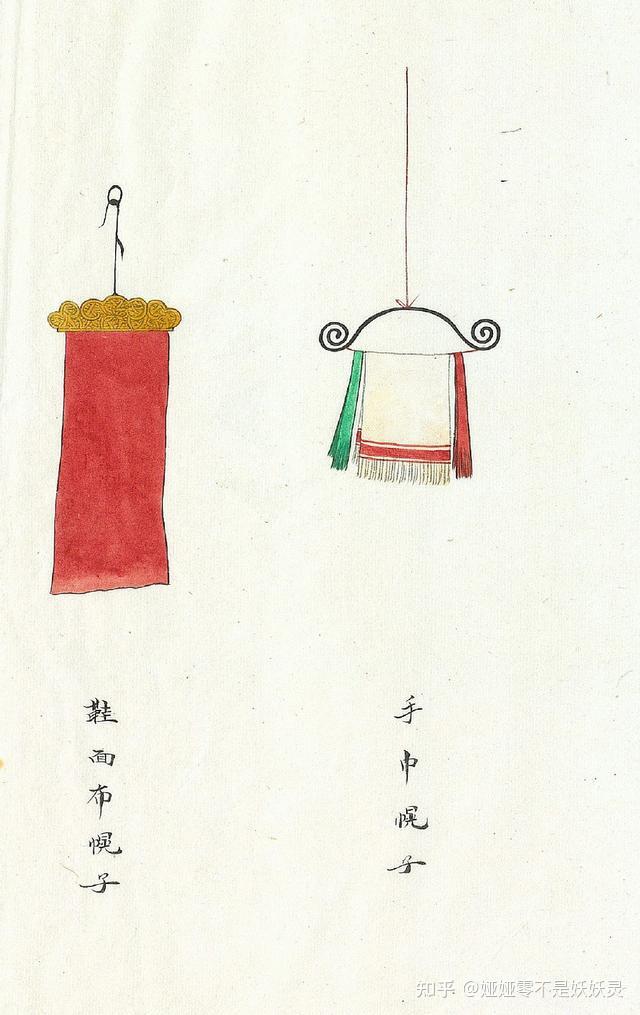 手巾幌子
鞋面布幌子
知乎 @娅娅零不是妖妖灵